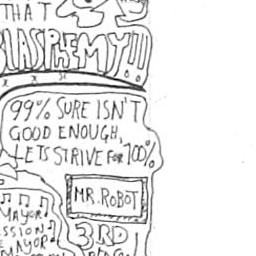 THAT
BLASPHEMY!!!
99% SURE ISN'T
GOOD ENOUGH,
LETS STRIVE FOR 100%
MR. ROBOT
MAYOR
SSION
MAYOR
3RD